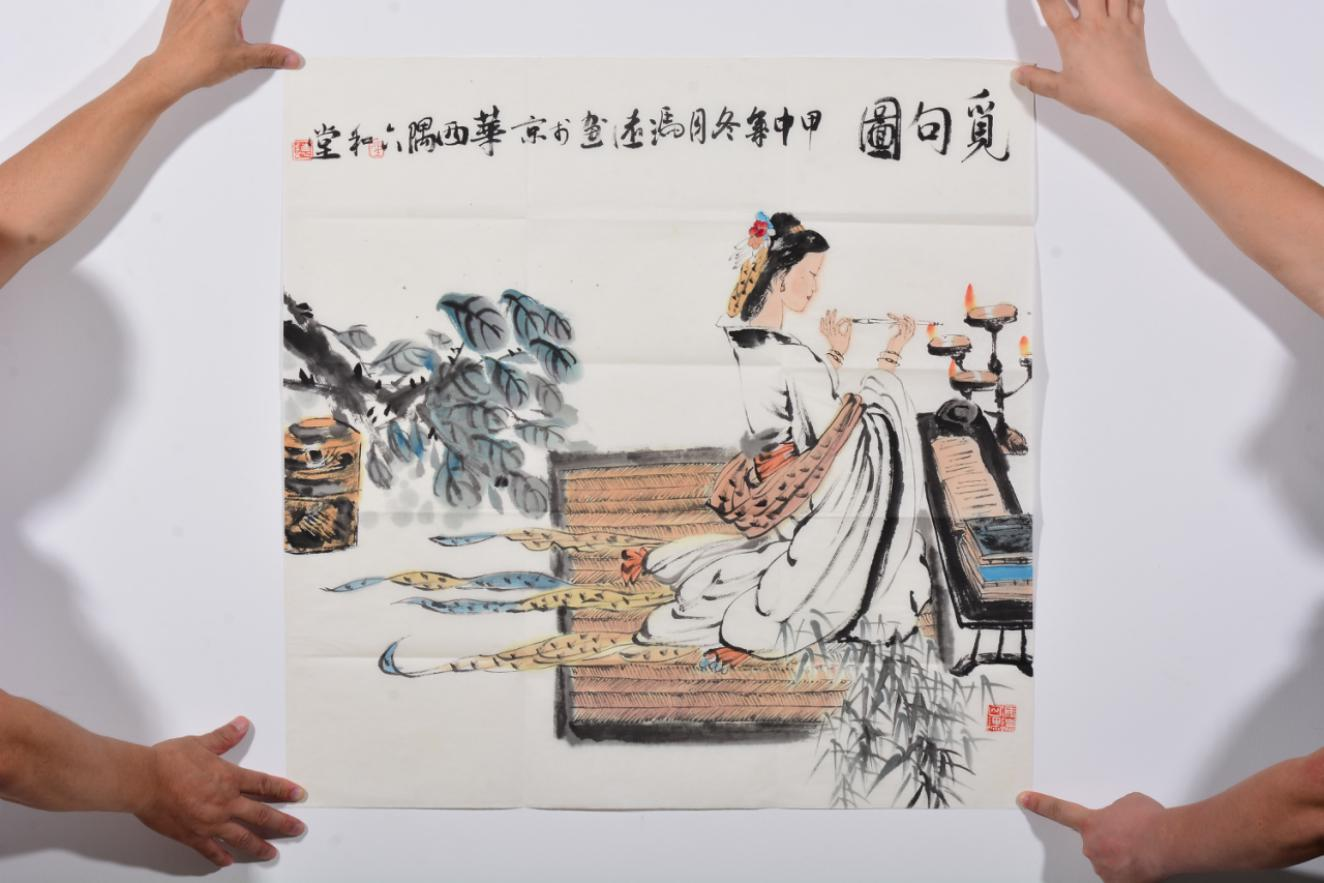 覓句圖
甲申年冬月馮遠畫於京華西隅六和堂